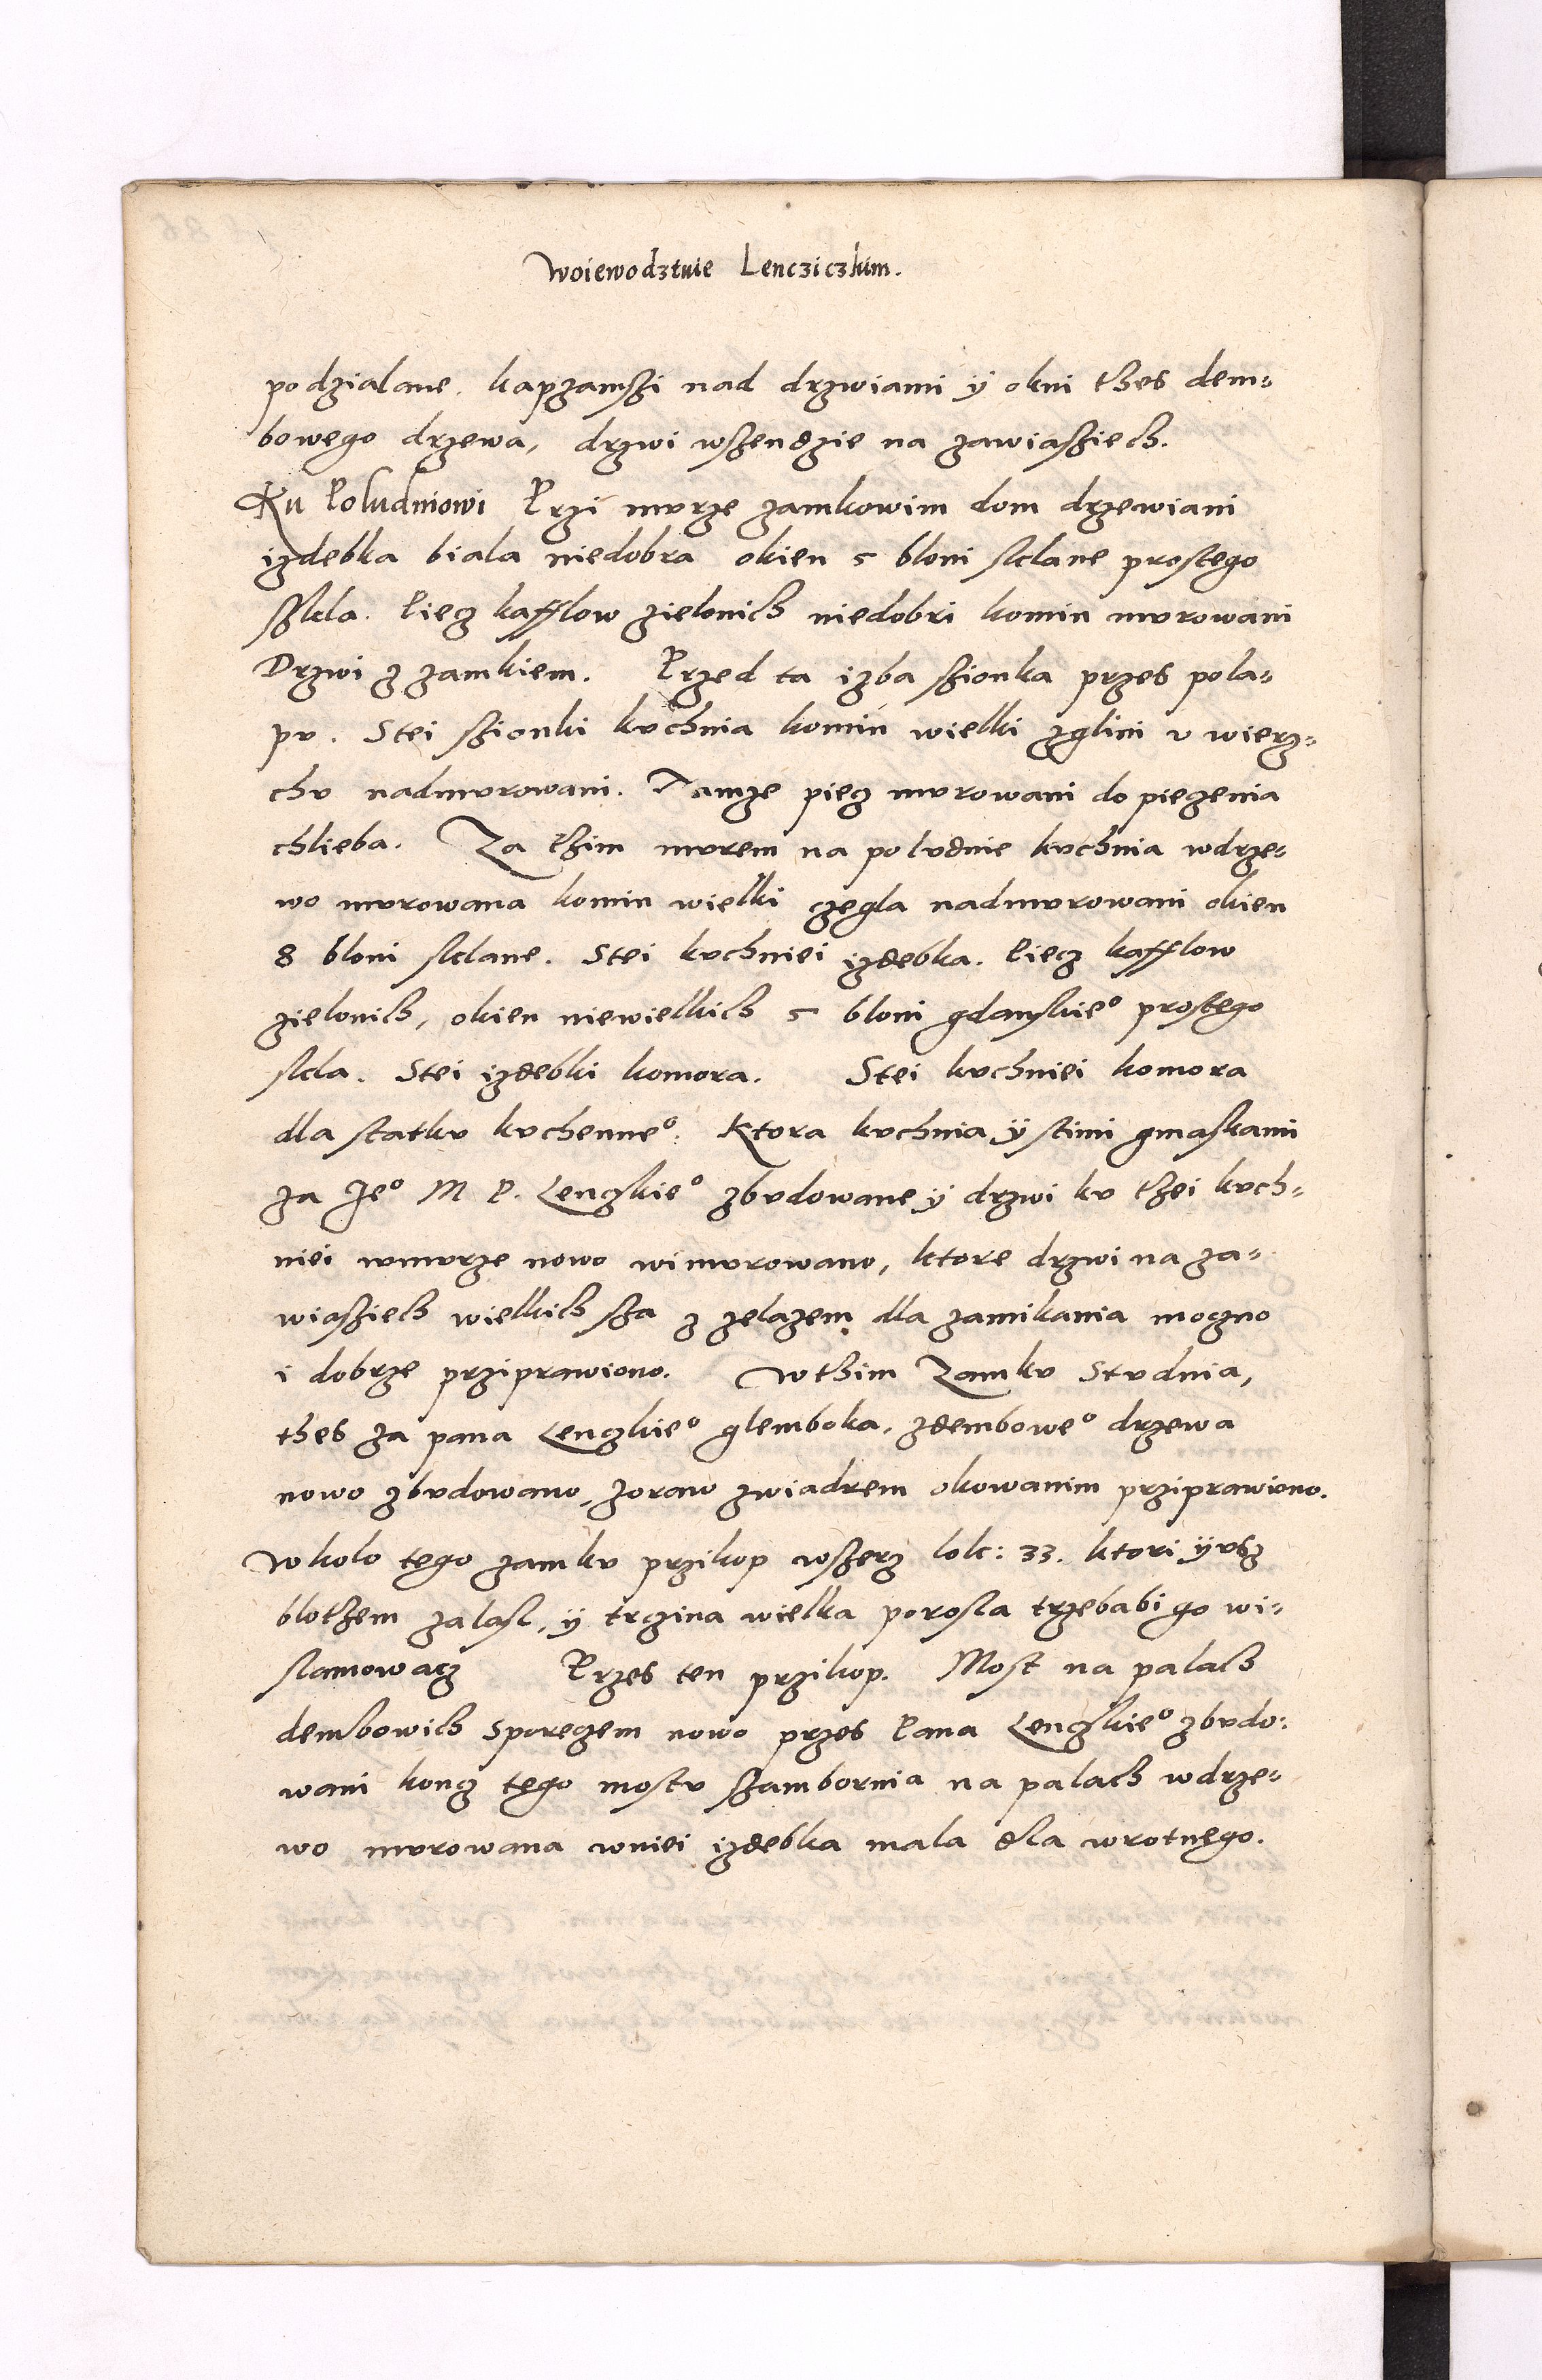 Woiewodztwie Lencziczkim.
podzialane. kapzamszi nad drzwiami ÿ okni thes dem=
bowego drzewa, drzwi wszendzie na zawiasziech.
Ku Poludniowi Przi mvrze zamkowim dom drzewiani
izdebka biala niedobra okien 5 bloni sklane prostego
szkla. Piecz kafflow zielonich niedobri komin mvrowani
Drzwi z zamkiem. Przed ta izba szionka przes pola=
pv. Stei szionki kvchnia komin wielki zglini v wierz=
chv nadmvrowani. Tamze piecz mvrowani do pieczenia
chlieba. Za thim mvrem na polvdnie kvchnia wdrze=
wo mvrowana komin wielki czegla nadmvrowani okien
8 bloni sklane. Stei kvchniei izdebka. Piecz kafflow
zielonich, okien niewielkich 5 bloni gdanskieº prostego
skla. Stei izdebki komora. Stei kvchniei komora
dla statkv kvchenneº. Ktora kvchnia ÿ stimi gmaskami
za Jeº M P. Lenczkieº zbvdowane ÿ drzwi kv thei kvch=
niei wmvrze nowo wimvrowano, ktore drzwi na za=
wiasziech wielkich sza z zelazem dla zamikania moczno
i dobrze prziprawiono. W thim Zamkv Stvdnia,
thes za pana Lenczkieº glemboka, zdemboweº drzewa
nowo zbvdowano, zoraw zwiadrem okowanim prziprawiono.
W kolo tego zamkv przikop wszerz lokc: 33. ktori ÿvsz
blothem zalasl, ÿ trczina wielka porosla trzebabi go wi=
slamowacz Przes ten przikop. Most na palach
dembowich Sporeczem nowo przes Pana Lenczkieº zbvdo=
wani koncz tego mostv szambornia na palach wdrze=
wo mvrowana wniei izdebka mala dla wrotnego.